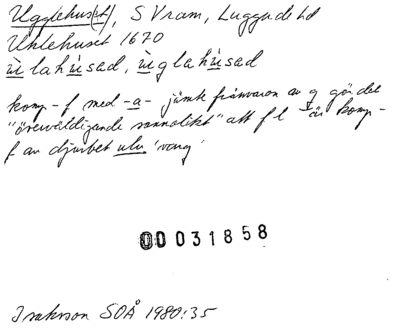 Ugglehus(et), S Vram, Luggude hd
Uhlehuset 1670
ùlahùsad, ùglahùsad
komp-f med -a- jämte frånvaron av g gör det
"överväldigande sannolikt" att f l är komp-
f av djurbet ulv 'varg'
00031858
Isakson SOÅ 1980:35